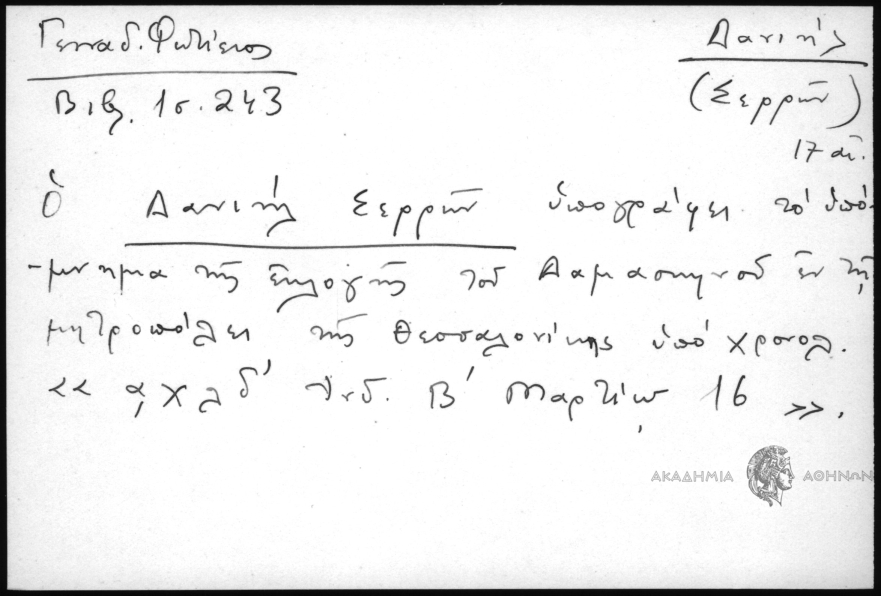 Γενναδ. Φωτίειος
Βιβ. 1 σ. 243
Δανιήλ
(Σερρῶν)
17 αἰ.
Ὁ Δανιήλ Σερρῶν ὑπογράφει τό ὑπό-
-μνημα τῆς ἐκλογῆς τοῦ Δαμασκηνοῦ ἐν τῇ
μητροπόλει τῆς Θεσσαλονίκης ὑπό χρονολ.
<< ͵αχλδ' Ἰνδ. Β' Μαρτίῳ 16 >>.
ΑΚΑΔΗΜΙΑ ΑΘΗΝΩΝ